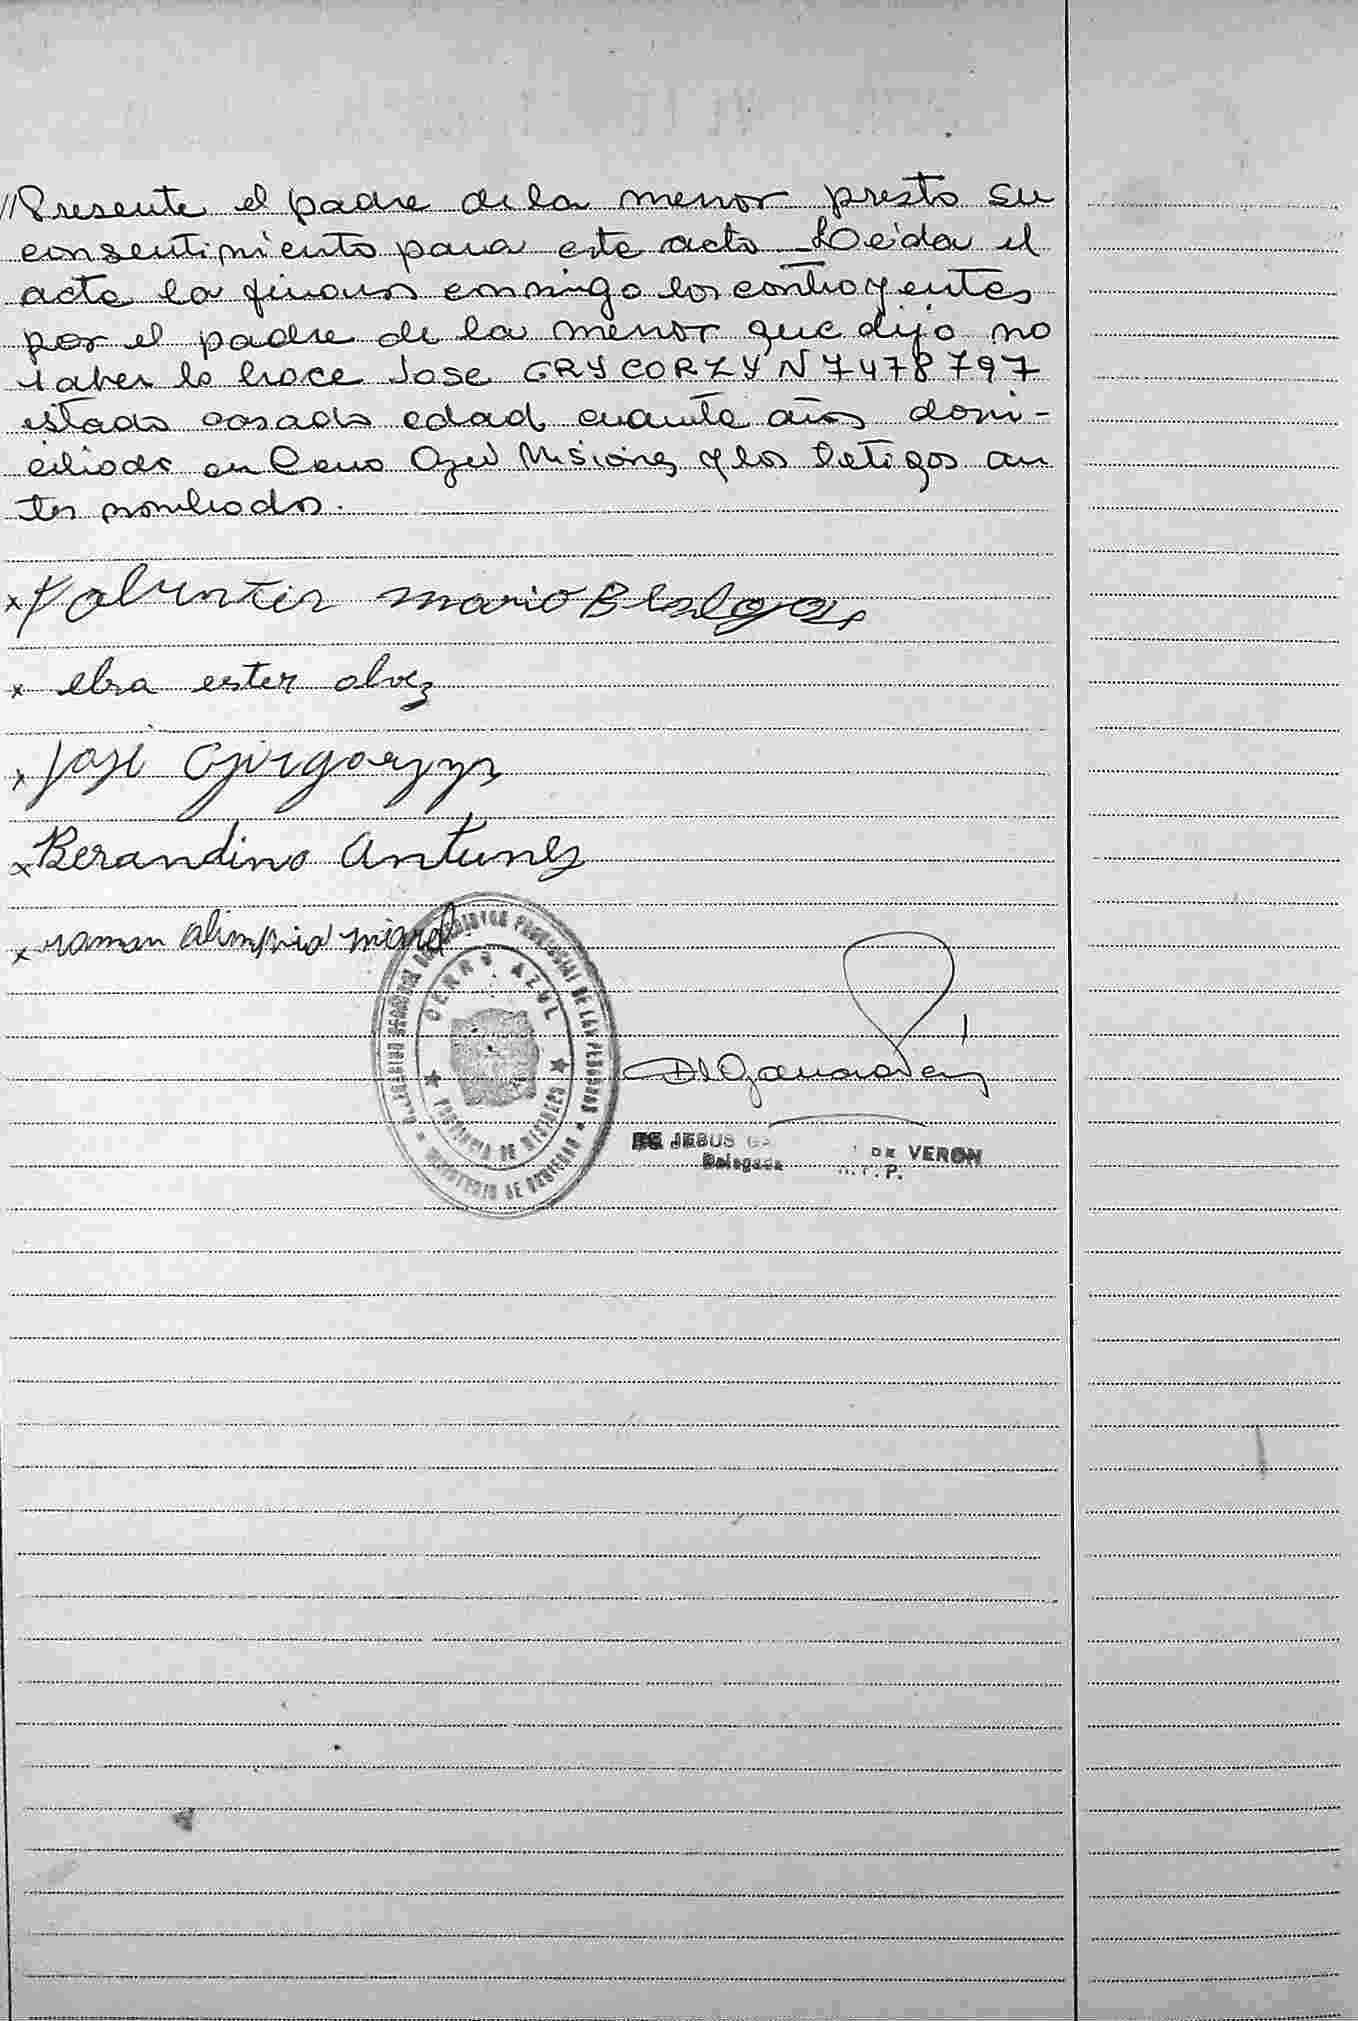 //Presente el padre de la menor presto su
consentimiento para este acto. Leida el
acta la firman conmigo los contrayentes
por el padre de la menor que dijo no
saber lo hace Jose GRYCORZYN 7478797
estado casado edad cuarenta años domi-
ciliado en Cerro Azul Misiones y los testigos an
tes nombrados.
x Valentin Mario
x elsa ester alvez
x José
x Berandino Antunes
x ramon alimpio
CERRO AZUL
PROVINCIA DE MISIONES
PROVINCIAL DE LAS PERSONAS
MINISTERIO DE GOBIERNO
DE JESUS GA DE VERON
Delegada R.P.P.